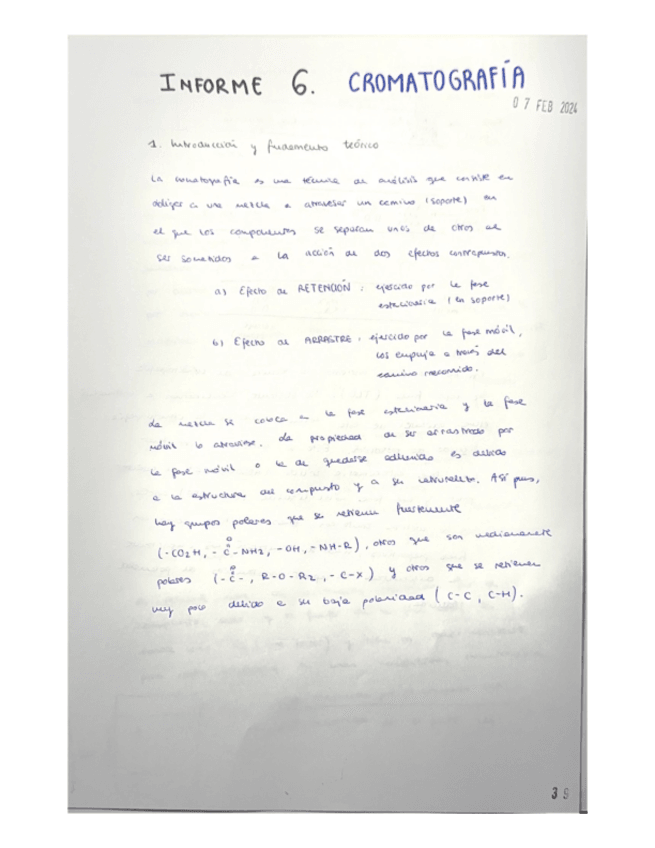 INFORME 6. CROMATOGRAFÍA
07 FEB 2024
1. Introducción y fudamento teórico
La cromatografía es una técnica de análisis que consiste en
obligar a una mezcla a atravesar un camino (soporte) en
el que los componentes se separan unos de otros al
ser sometidos a la acción de dos efectos contrapuestos.
a) Efecto de RETENCIÓN: ejercido por la fase
estacionaria (en soporte)
b) Efecto de ARRASTRE: ejercido por la fase móvil,
los empuja a través del
camino recorrido.
La mezcla se coloca en la fase estacionaria y la fase
móvil lo atraviesa. La propiedad de ser arrastrado por
la fase móvil o la de quedarse adherido es debido
a la estructura del compuesto y a su naturaleza. Así pues,
hay grupos polares que se retienen fuertemente
(-CO2H, -C-NH2, -OH, -NH-R), otros que son medianamente
polares (-C-, R-O-R2, -C-X) y otros que se retienen
muy poco debido a su baja polaridad (C-C, C-H).
39